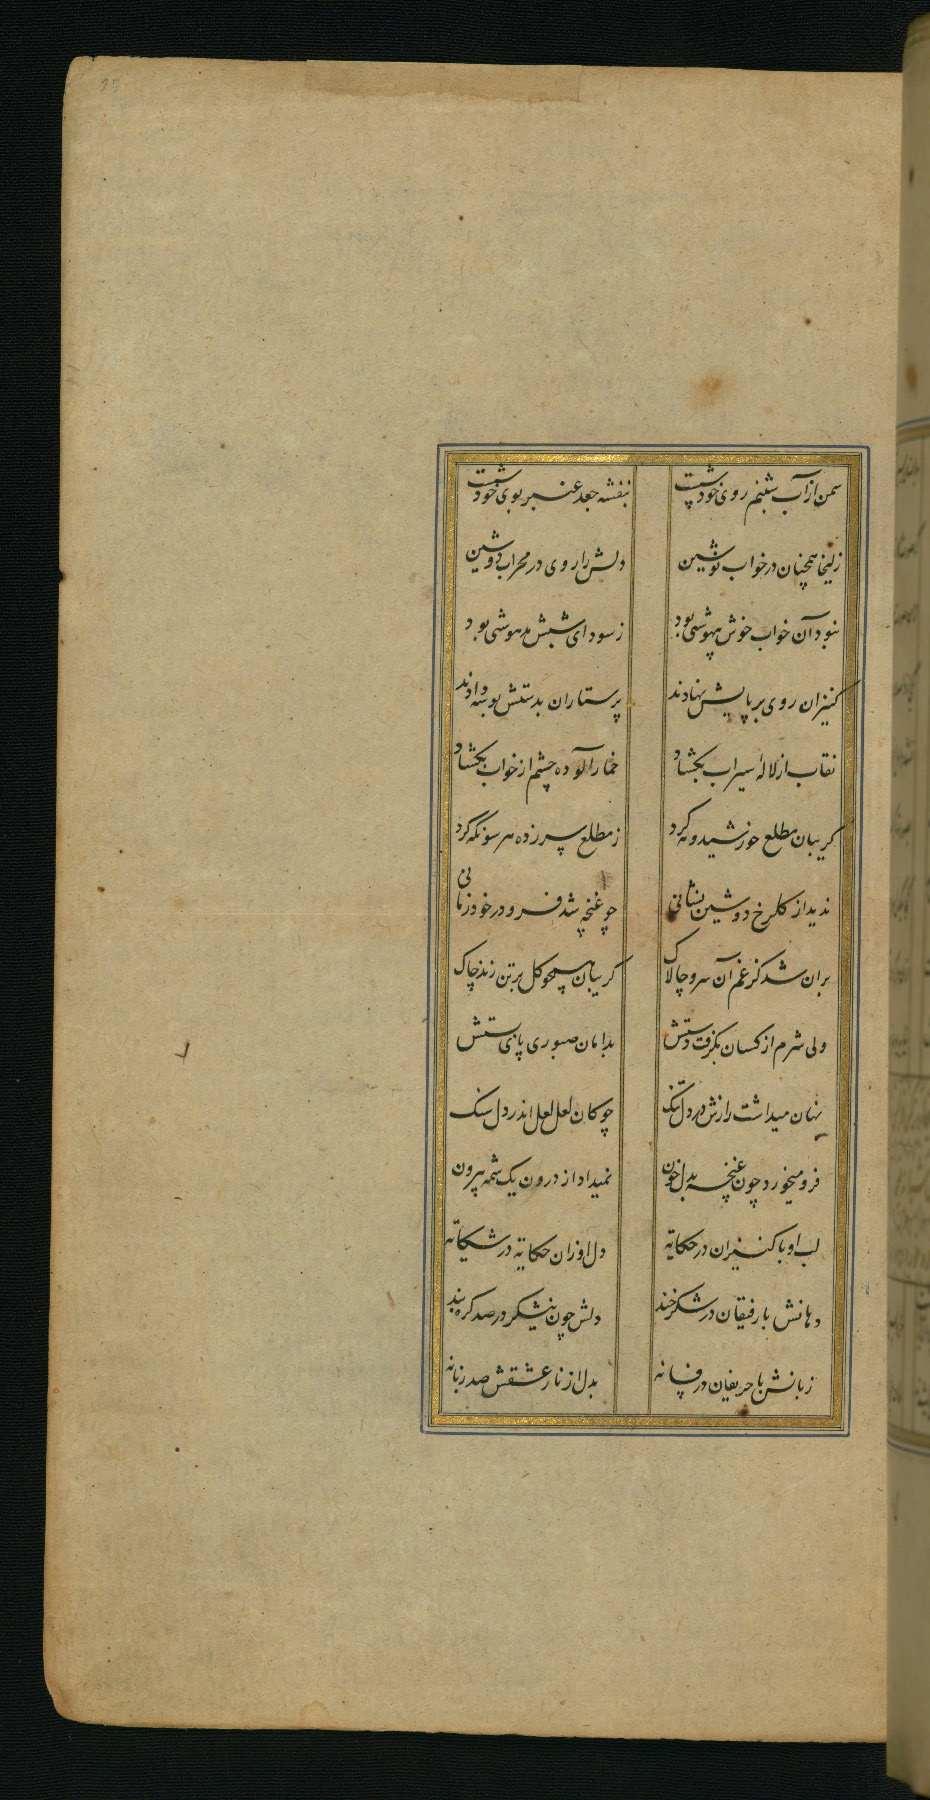 25
سمن از آب شبنم روی خود شست بنفشه جعد عنبر بوی خود شست
زلیخا همچنان در خواب نوشین دلش را روی در محراب دوشین
نبود آن خواب خوش بیهوشی بود ز سودای شبش مدهوشی بود
کنیزان روی بر پایش نهادند پرستاران بدستش بوسه دادند
نقاب از لالهٔ سیراب بکشاد خمار آلوده چشم از خواب بکشاد
کریبان مطلع خورشید و مه کرد ز مطلع سر زده هر سو نکه کرد
ندید از کلرخ دوشین نشانی چو غنچه شد فرو در خود زمانی
بران شد کز غم آن سرو چالاک کریبان همچو کل بر تن زند چاک
ولی شرم از کسان بکرفت دستش بدامان صبوری پای بستش
نهان میداشت رازش در دل تنک چو کان لعل لعل اندر دل سنک
فرو میخورد چون غنچه بدل خون نمیداد از درون یک شمه بیرون
لب او با کنیزان در حکایة دل او زان حکایة در شکایة
دهانش با رفیقان در شکر خند دلش چون نیشکر در صد کره بند
زبانش با حریفان در فسانه بدل از نار عشقش صد زبانه